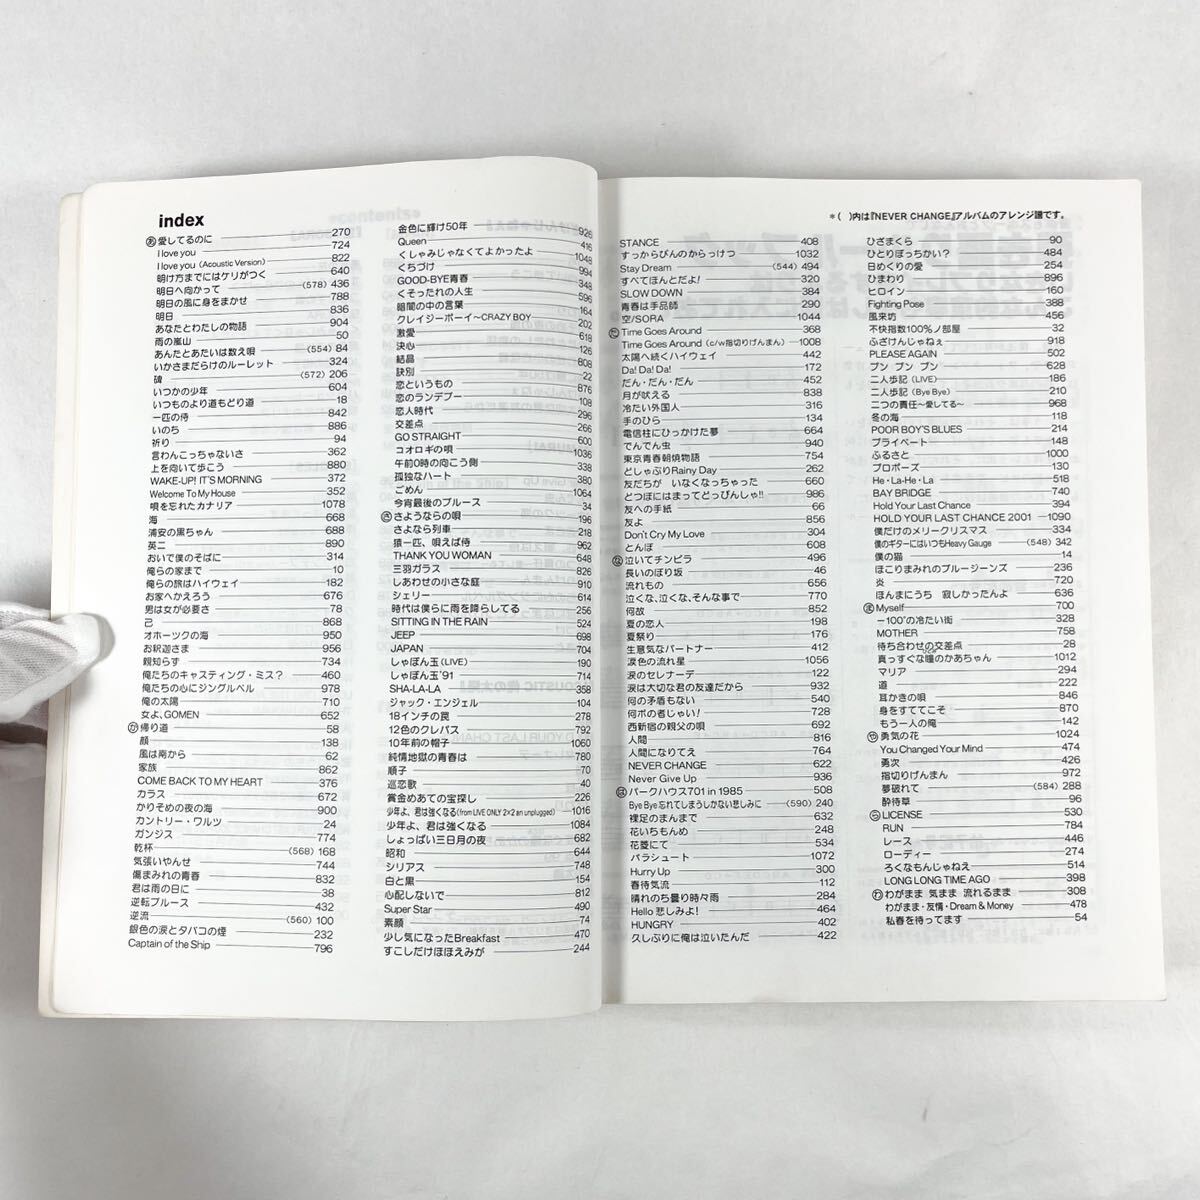 index
あ 愛してるのに 270
I love you 724
I love you (Acoustic Version) 822
明け方までにはケリがつく 640
明日へ向かって (578) 436
明日の風に身をまかせ 788
明日 836
あなたとわたしの物語 904
雨の嵐山 50
あんたとあたいは数え唄 (554) 84
いかさまだらけのルーレット 324
碑 (572) 206
いつかの少年 604
いつものより道もどり道 18
一匹の侍 842
いのち 886
祈り 94
言わんこっちゃないさ 362
上を向いて歩こう 880
WAKE-UP! IT'S MORNING 372
Welcome To My House 352
唄を忘れたカナリア 1078
海 668
浦安の黒ちゃん 688
英二 890
おいで僕のそばに 314
俺らの家まで 10
俺らの旅はハイウェイ 182
お家へかえろう 676
男は女が必要さ 78
己 868
オホーツクの海 950
お釈迦さま 956
親知らず 734
俺たちのキャスティング・ミス? 460
俺たちの心にジングルベル 978
俺の太陽 710
女よ、GOMEN 652
か 帰り道 58
顔 138
風は南から 62
家族 862
COME BACK TO MY HEART 376
カラス 672
かりそめの夜の海 900
カントリー・ワルツ 24
ガンジス 774
乾杯 (568) 168
気張いやんせ 744
傷まみれの青春 832
君は雨の日に 38
逆転ブルース 432
逆流 (560) 100
銀色の涙とタバコの煙 232
Captain of the Ship 796
金色に輝け50年 926
Queen 416
くしゃみじゃなくてよかったよ 1048
くちづけ 994
GOOD-BYE青春 348
くそったれの人生 596
暗闇の中の言葉 164
クレイジーボーイ〜CRAZY BOY 592
激愛 618
決心 126
結晶 808
訣別 22
恋というもの 876
恋のランデブー 108
恋人時代 296
交差点 266
GO STRAIGHT 600
コオロギの唄 1036
午前0時の向こう側 338
孤独なハート 380
ごめん 1064
今宵最後のブルース 34
さ さようならの唄 196
さよなら列車 218
猿一匹、唄えば侍 962
THANK YOU WOMAN 648
三羽ガラス 826
しあわせの小さな庭 910
シェリー 614
時代は僕らに雨を降らしてる 256
SITTING IN THE RAIN 524
JEEP 698
JAPAN 704
しゃぼん玉(LIVE) 190
しゃぼん玉'91 714
SHA-LA-LA 358
ジャック・エンジェル 104
18インチの罠 278
12色のクレパス 792
10年前の帽子 1060
純情地獄の青春は 780
順子 70
巡恋歌 40
賞金めあての宝探し 226
少年よ、君は強くなる(from LIVE ONLY 2×2 an unplugged) 1016
少年よ、君は強くなる 1084
しょっぱい三日月の夜 682
昭和 644
シリアス 748
白と黒 154
心配しないで 812
Super Star 490
素顔 74
少し気になったBreakfast 470
すこしだけほほえみが 244
*( )内は『NEVER CHANGE』アルバムのアレンジ譜です。
STANCE 408
すっからぴんのからっけつ 1032
Stay Dream (544) 494
すべてほんとだよ! 320
SLOW DOWN 384
青春は手品師 290
空/SORA 1044
た Time Goes Around 368
Time Goes Around (c/w指切りげんまん) 1008
太陽へ続くハイウェイ 442
Da! Da! Da! 172
だん・だん・だん 452
月が吠える 838
冷たい外国人 316
手のひら 134
電信柱にひっかけた夢 664
でんでん虫 940
東京青春朝焼物語 754
どしゃぶりRainy Day 262
友だちが いなくなっちゃった 660
どつぼにはまってどっぴんしゃ!! 986
友への手紙 66
友よ 856
Don't Cry My Love 304
とんぼ 608
な 泣いてチンピラ 496
長いのぼり坂 46
流れもの 656
泣くな、泣くな、そんな事で 770
何故 852
夏の恋人 198
夏祭り 176
生意気なパートナー 412
涙色の流れ星 1056
涙のセレナーデ 122
涙は大切な君の友達だから 932
何の矛盾もない 540
何ボの者じゃい! 728
西新宿の親父の唄 692
人間 816
人間になりてえ 764
NEVER CHANGE 622
Never Give Up 936
は パークハウス701 in 1985 508
Bye Bye 忘れてしまうしかない悲しみに (590) 240
裸足のまんまで 632
花いちもんめ 248
花菱にて 534
パラシュート 1072
Hurry Up 300
春待気流 112
晴れのち曇り時々雨 284
Hello 悲しみよ! 464
HUNGRY 402
久しぶりに俺は泣いたんだ 422
ひざまくら 90
ひとりぼっちかい? 484
日めくりの愛 254
ひまわり 896
ヒロイン 160
Fighting Pose 388
風来坊 456
不快指数100%ノ部屋 32
ふざけんじゃねぇ 918
PLEASE AGAIN 502
ブン ブン ブン 628
二人歩記(LIVE) 186
二人歩記(Bye Bye) 210
二つの責任〜愛してる〜 968
冬の海 118
POOR BOY'S BLUES 214
プライベート 148
ふるさと 1000
プロポーズ 130
He・La-He・La 518
BAY BRIDGE 740
Hold Your Last Chance 394
HOLD YOUR LAST CHANCE 2001 1090
僕だけのメリークリスマス 334
僕のギターにはいつもHeavy Gauge (548) 342
僕の猫 14
ほこりまみれのブルージーンズ 236
炎 720
ほんまにうち 寂しかったんよ 636
ま Myself 700
-100°の冷たい街 328
MOTHER 758
待ち合わせの交差点 28
真っすぐな瞳のかあちゃん 1012
マリア 294
道 222
耳かきの唄 846
身をすててこそ 870
もう一人の俺 142
や 勇気の花 1024
You Changed Your Mind 474
勇次 426
指切りげんまん 972
夢破れて (584) 288
酔待草 96
ら LICENSE 530
RUN 784
レース 446
ローディー 274
ろくなもんじゃねえ 514
LONG LONG TIME AGO 398
わ わがまま 気まま 流れるまま 308
わがまま・友情・Dream & Money 478
私春を待ってます 54